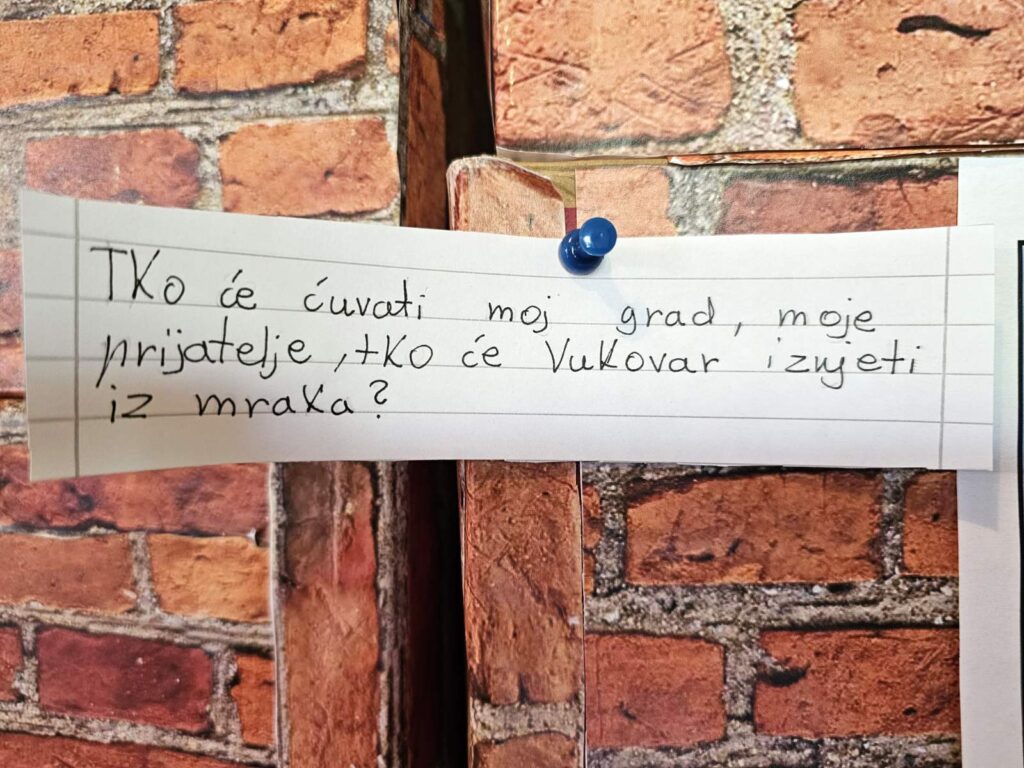 Tko će ćuvati moj grad, moje
prijatelje, tko će Vukovar iznjeti
iz mraka?